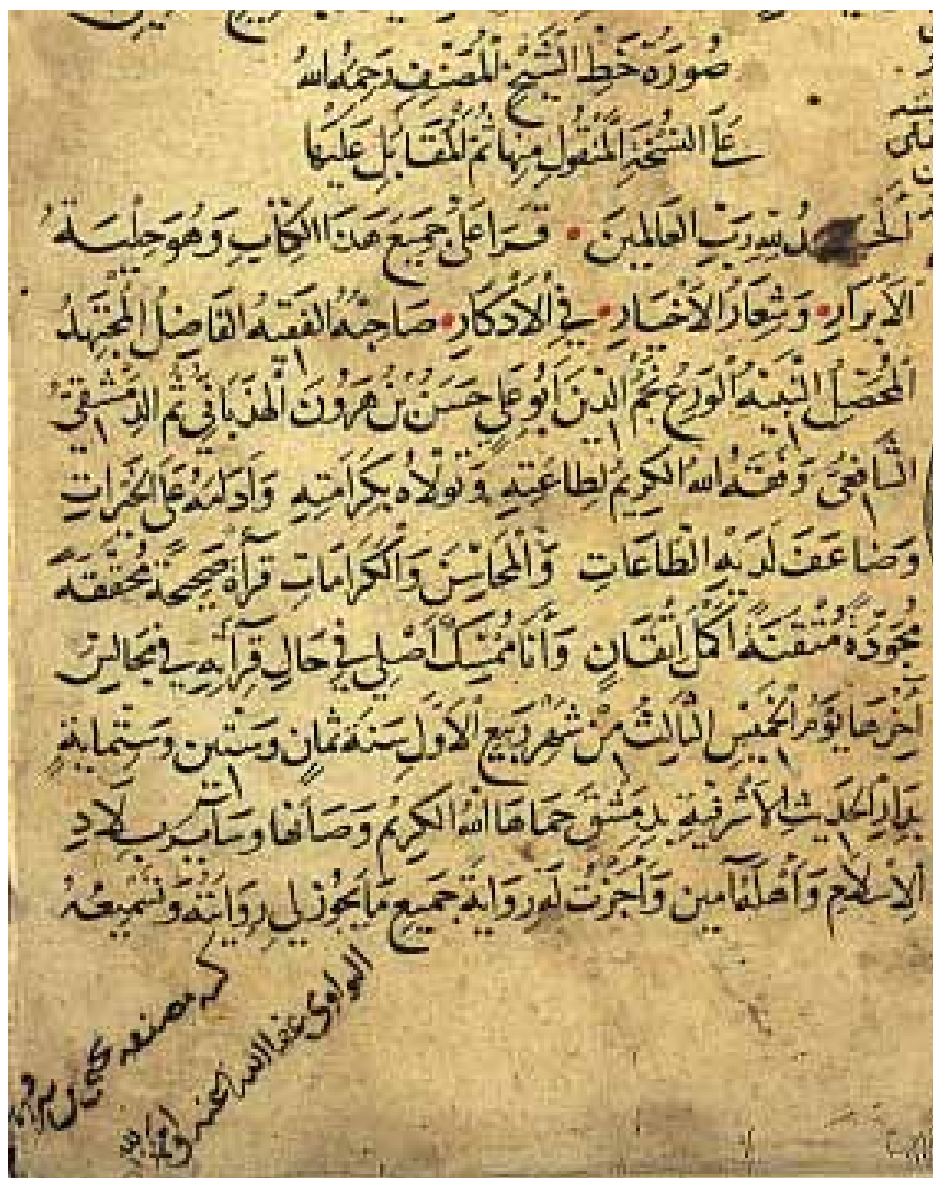 صُورَة خَطِّ الشَّيْخِ المُصَنِّفِ رَحِمَهُ اللهُ
عَلَى النُّسْخَةِ المَنْقُولِ مِنْهَا ثُمَّ المُقَابَلِ عَلَيْهَا
الحَمْدُ لِلّهِ رَبِّ العَالَمِينَ • قَرَأَ عَلَيَّ جَمِيعَ هَذَا الكِتَابِ وَهُوَ حِلْيَةُ
الأَبْرَارِ • وَشِعَارُ الأَخْيَارِ • فِي الأَذْكَارِ • صَاحِبُهُ الفَقِيهُ الفَاضِلُ المُجْتَهِدُ
المُحَصِّلُ النَّبِيهُ الوَرِعُ نَجْمُ الدِّينِ أَبُو عَلِي حَسَنُ بْنُ هَرُونَ الهَذَبَانِيُّ ثُمَّ الدِّمَشْقِيُّ
الشَّافِعِيُّ وَفَّقَهُ اللهُ الكَرِيمُ لِطَاعَتِهِ وَتَوَلَّاهُ بِكَرَامَتِهِ وَأَدَامَهُ عَلَى الخَيْرَاتِ
وَضَاعَفَ لَدَيْهِ الطَّاعَاتِ وَالمَحَاسِنَ وَالكَرَامَاتِ قِرَأَةً صَحِيحَةً مُحَقَّقَةً
مُجَوَّدَةً مُتْقَنَةً أَكْمَلَ إِتْقَانٍ وَأَنَا مُمْسِكٌ أَصْلِي فِي حَالِ قِرَآئَتِهِ فِي مَجَالِسَ
آخِرُهَا يَوْمُ الخَمِيسِ الثَّالِثُ مِنْ شَهْرِ رَبِيعِ الأَوَّلِ سَنَةَ ثَمَانٍ وَسِتِّينَ وَسِتِّمِايَةٍ
بِدَارِ الحَدِيثِ الأَشْرَفِيَّةِ بِدِمَشْقَ حَمَاهَا اللهُ الكَرِيمُ وَصَانَهَا وَسَآيِرَ بِلَادِ
الإِسْلَامِ وَأَهْلَهَا آمِينَ وَأَجَزْتُ لَهُ رِوَايَةَ جَمِيعِ مَا يَجُوزُ لِي رِوَايَتُهُ وَتَسْمِيعُهُ
كتبه مصنفه يحيى بن شرف
النواوى عفا الله عنه